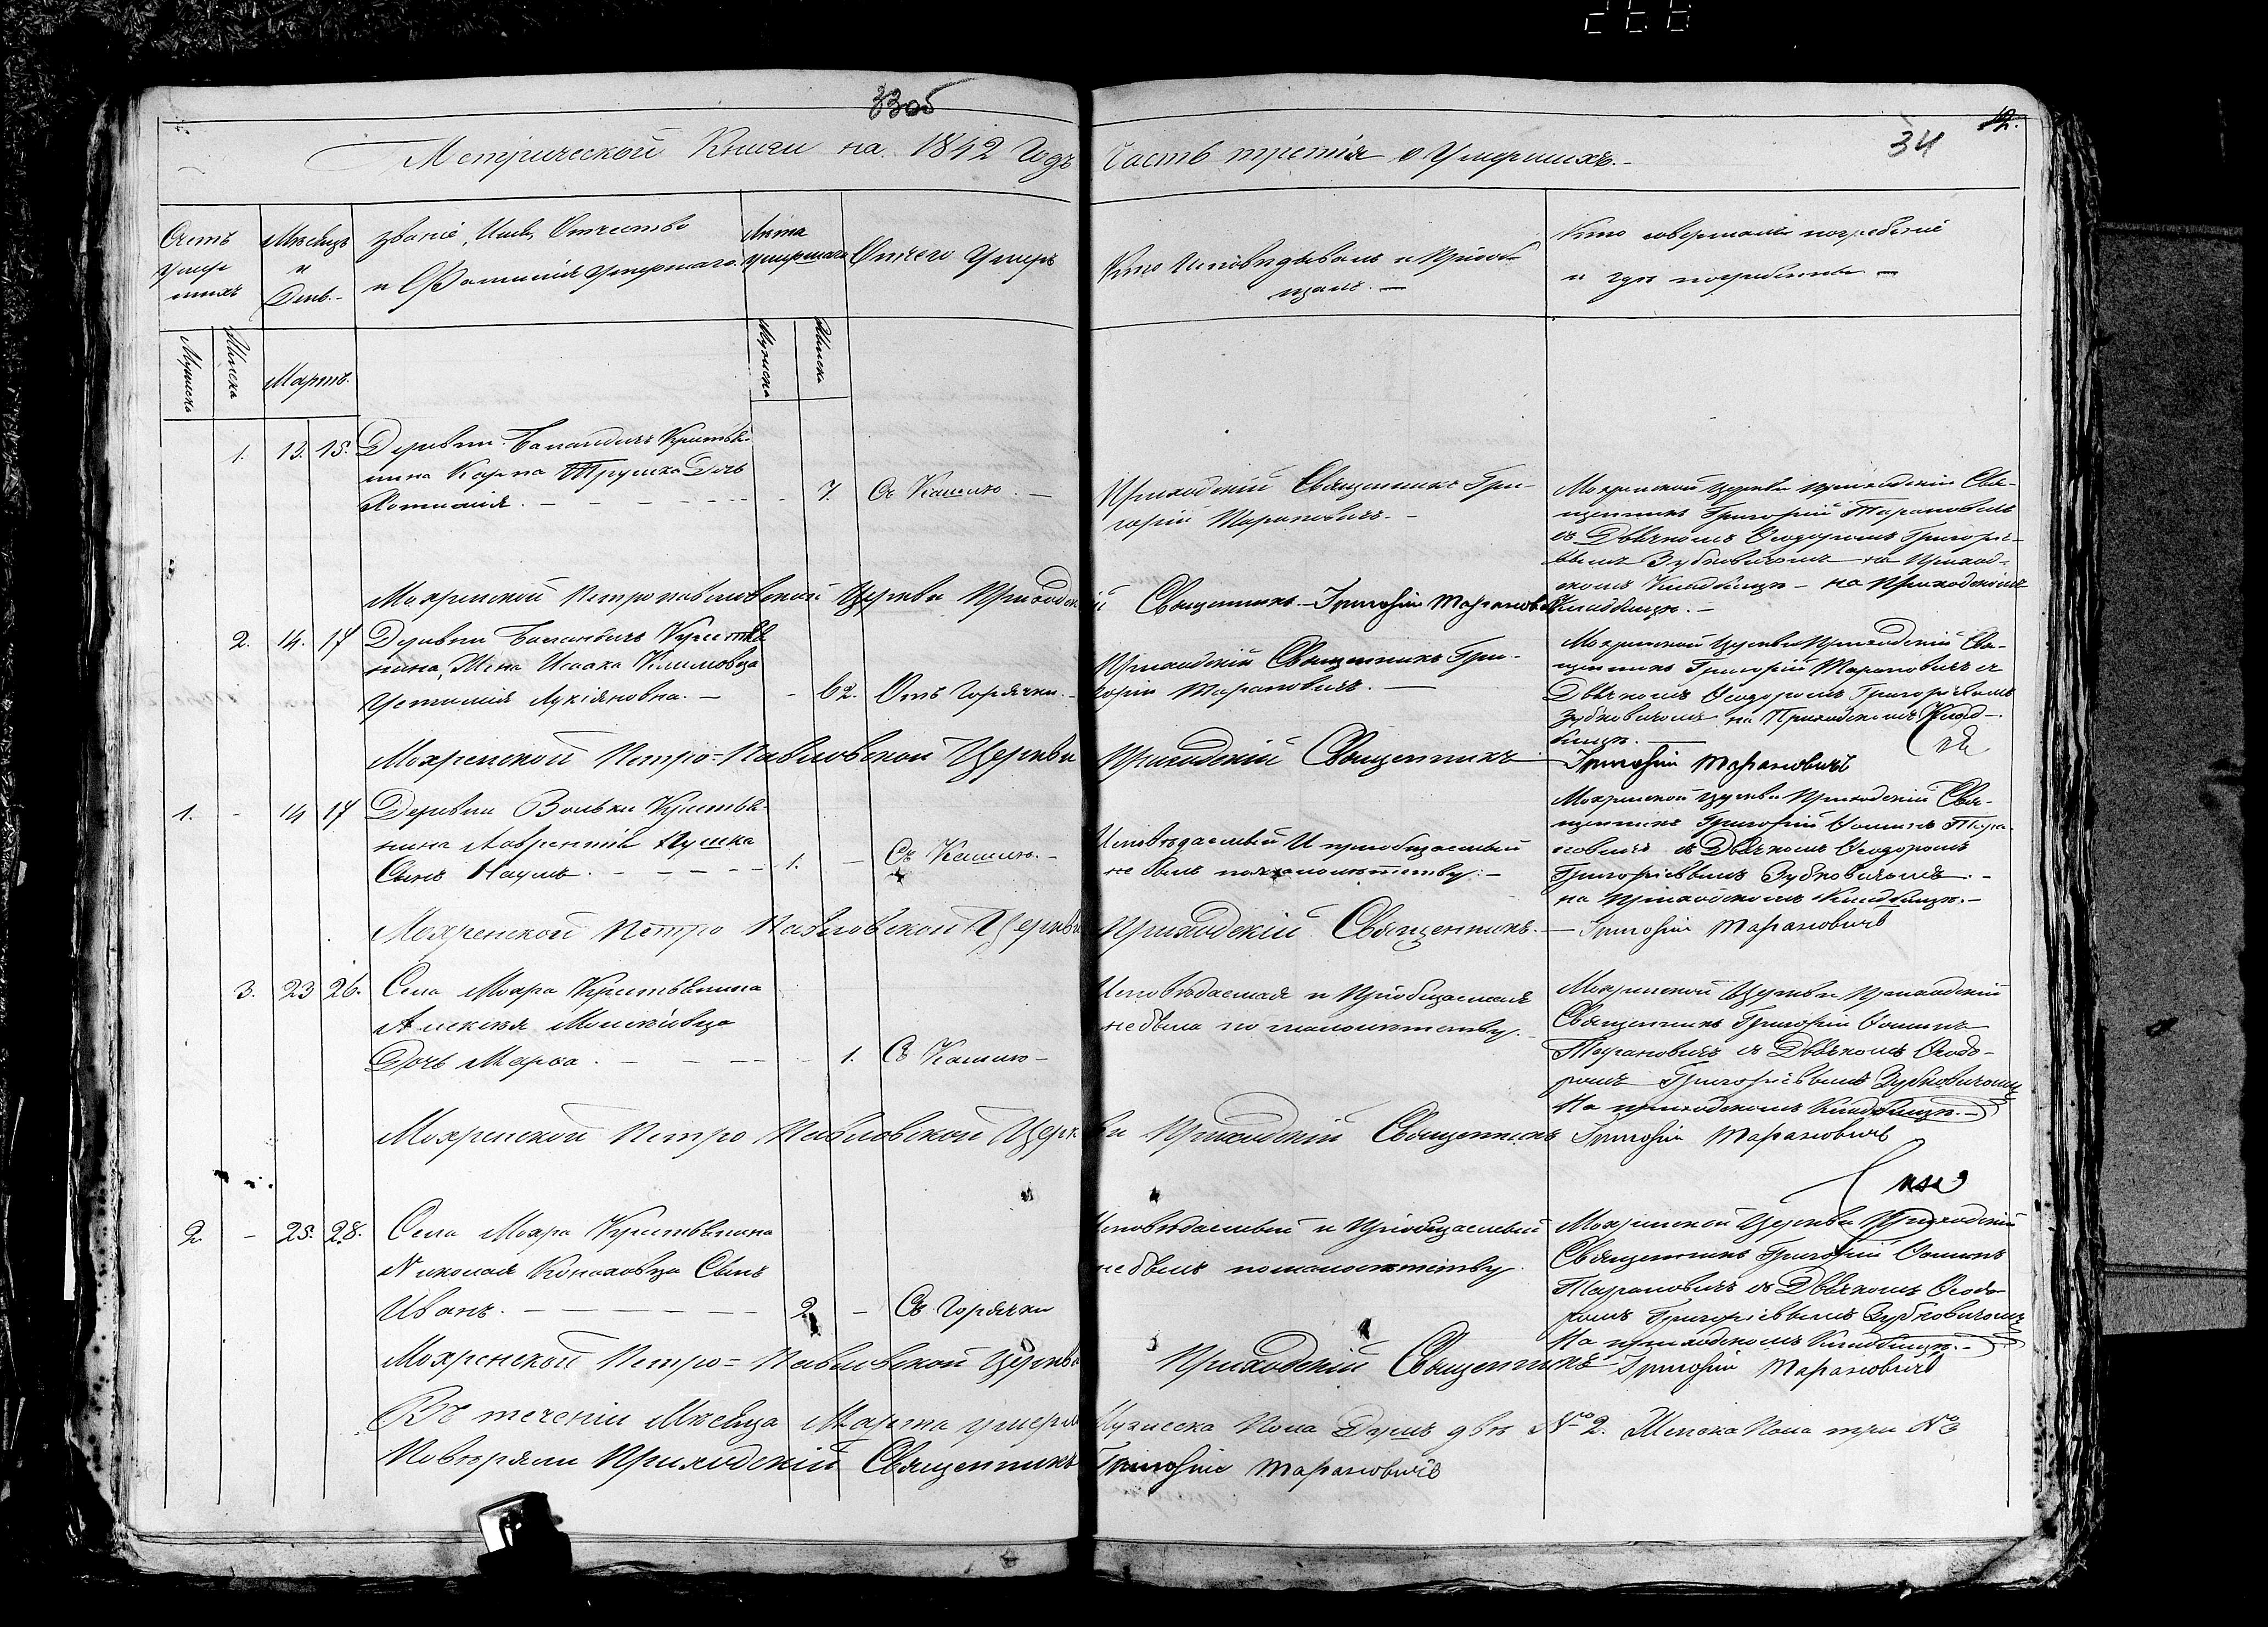 266
33об
34
12.
Метрической Книги на 1842 Годъ Часть третія о Умершихъ.
Счетъ
умер
шихъ
Мѣсяцъ
и
День.
Званіе, Имя, Отчество
и Фамилія умершаго.
Лѣта
умершаго
Отчего Умеръ
Кто Исповѣдывалъ и Пріоб-
щалъ. —
Кто совершалъ погребеніе
и гдѣ погребены —
Мужеска
Женска
Мартъ.
Мужеска
Женска
1. 13. 15.
Деревни Крестья-
нина Карпа Трушка Дочь
— 7. Съ Кашлю. —
Приходскій Священникъ Гри-
горій Тарановичъ. —
Мохренской Церкви приходскій Свя-
щенникъ Григорій Тарановичъ
съ Дьячкомъ Ѳеодоромъ Григорі-
вымъ Зубковичомъ на Приход-
скомъ Кладбищѣ — на Приходскомъ
Кладбищѣ. —
Мохренской Петропавловской Церкви Приходскій Священникъ Григорій Тарановичъ
2. 14. 17
Деревни Крестья
нина, Жена Исаака Климовца
Устинія Лукіяновна. —
- 62. Отъ Горячки. —
Приходскій Священникъ Гри-
горій Тарановичъ. —
Мохренской Церкви Приходскій Свя-
щенникъ Григорій Тарановичъ съ
Дьячкомъ Ѳеодоромъ Григоріевымъ
Зубковичомъ на Приходскомъ Клад-
бищѣ. —
Мохренской Петро=Павловской Церкви Приходскій Священникъ
Григорій Тарановичъ
1. - 14 17
Деревни Вольки Крестья-
нина Лаврентія
Сынъ Наумъ. — 1. — Съ Кашлю. —
Исповѣдаемый И пріобщаемый
не былъ по малолѣтству. —
Мохренской Церкви Приходскій Свя-
щенникъ Григорій Ѳоминъ Тара-
новичъ съ Дьячкомъ Ѳеодоромъ
Григоріевымъ Зубковичомъ. —
на Приходскомъ Кладбищѣ. —
Мохренской Петро Павловской Церкви Приходскій Священникъ. — Григорій Тарановичъ
3. 23 26.
Села Мохра Крестьянина
Алексѣя
Дочь Марѳа. — 1. Съ Кашлю —
Исповѣдаемая и Пріобщаемая
не была по малолѣтству. —
Мохренской Церкви Приходскій
Священникъ Григорій Ѳоминъ
Тарановичъ съ Дьячкомъ Ѳеодо-
ромъ Григоріевымъ Зубковичомъ
На приходскомъ Кладбищѣ. —
Мохренской Петро Павловской Церкви Приходскій Священникъ Григорій Тарановичъ
2. - 25. 28.
Села Мохра Крестьянина
Николая Конаховца Сынъ
Иванъ. — 2 — Съ Горячки
Исповѣдаемый и Пріобщаемый
не былъ по малолѣтству.
Мохренской Церкви Приходскій
Священникъ Григорій Ѳоминъ
Тарановичъ съ Дьячкомъ Ѳеодо-
ромъ Григоріевымъ Зубковичомъ
На приходскомъ Кладбищѣ. —
Мохренской Петро=Павловской Церкви Приходскій Священникъ Григорій Тарановичъ
Въ теченіи Мѣсяца Марта умерло Мужеска Пола Душъ двѣ № 2. Женска Пола три № 3
Повѣряли Приходскій Священникъ Григорій Тарановичъ